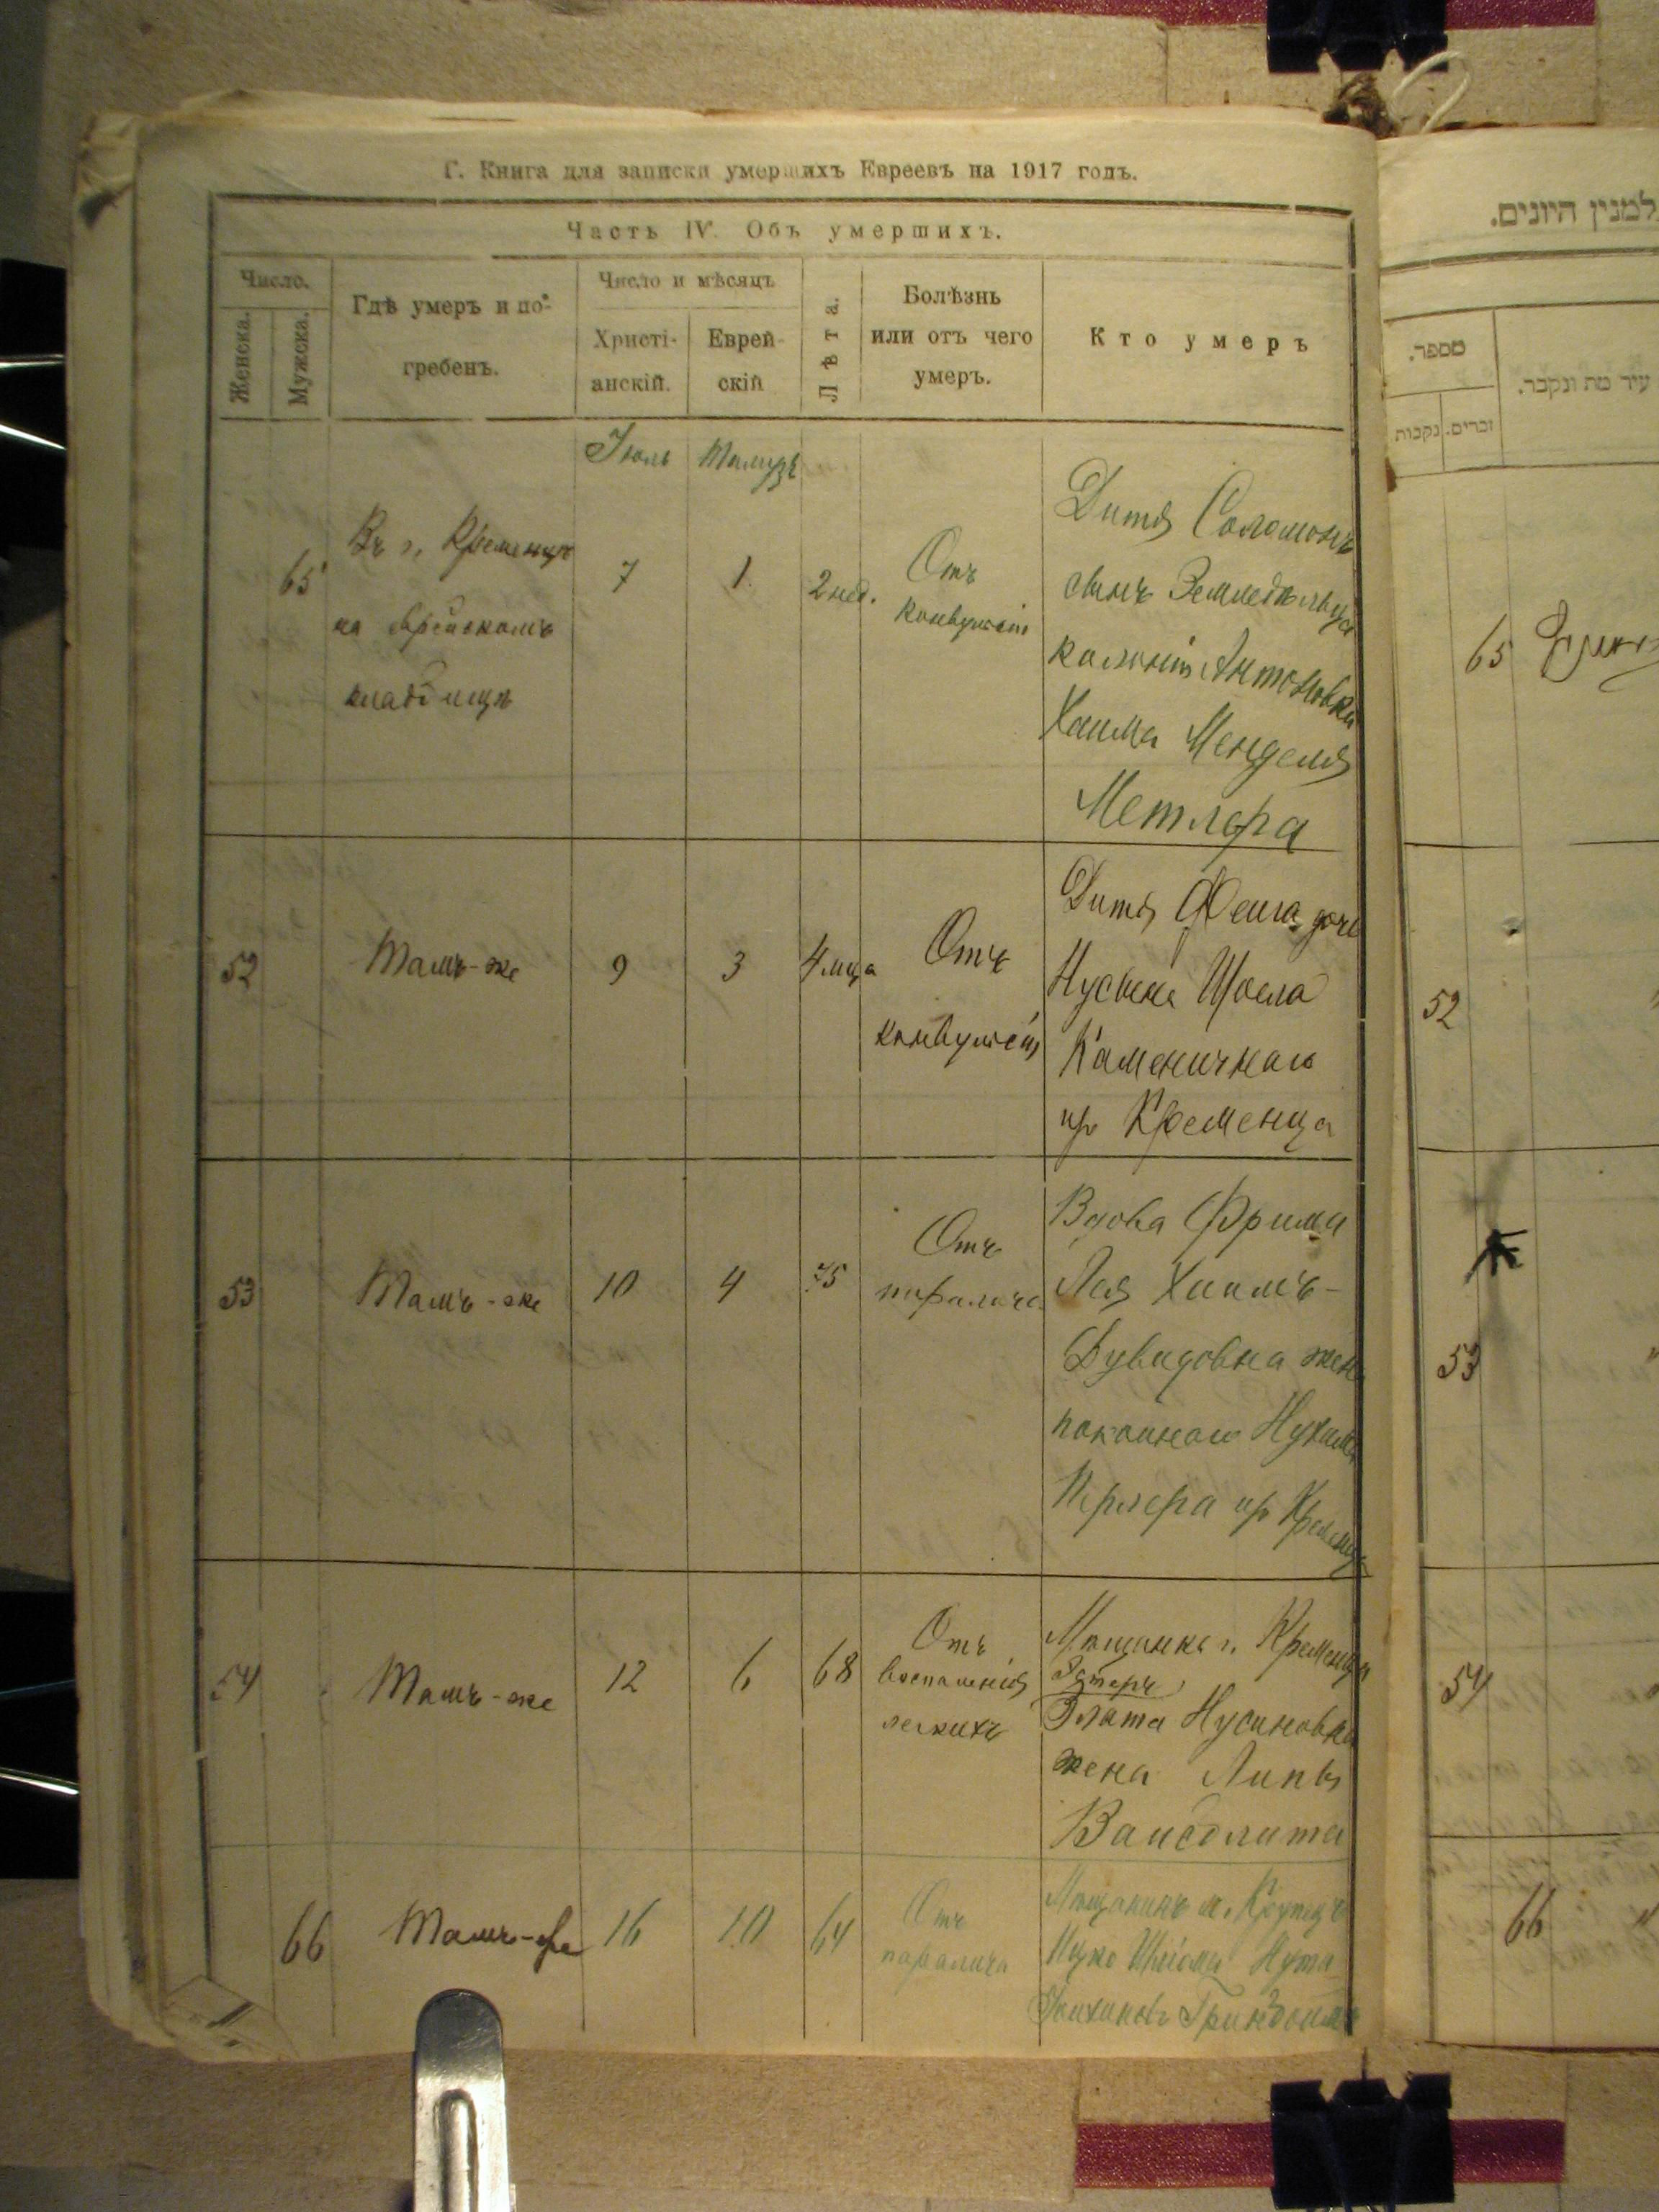 Г. Книга для записки умершихъ Евреевъ на 1917 годъ.
Часть IV. Объ умершихъ.
Число.
Женска.
Мужска.
Гдѣ умеръ и по-
гребенъ.
Число и мѣсяцъ
Христі-
анскій.
Еврей-
скій
Лѣта.
Болѣзнь
или отъ чего
умеръ.
Кто умеръ
Іюль Тамузъ
65 Въ г. Кременцѣ
на еврейскомъ
кладбищѣ
7 1 2 нед.
Отъ
конвульсіи
Дитя Соломонъ
сынъ Земледѣльца
колоніи Антоновки
Хаима Менделя
Метлера
52 Тамъ-же 9 3 4 мца
Отъ
конвульсіи
Дитя Фейга дочь
Нусина
Каменичнаго
пр Кременца
53 Тамъ-же 10 4 75
Отъ
паралича
Вдова Фрима
Лея Хаимъ-
Дувидовна жена
покойнаго Нухима
Перлера пр Кременца
54 Тамъ-же 12 6 68
Отъ
воспаленія
легкихъ
Мѣщанка г. Кременца
Эстеръ
Злата Нусиновна
жена Липы
Вайсблита
66 Тамъ-же 16 10 64
Отъ
паралича
Мѣщанинъ м.
Ицко Шлёма Нута
למנין היונים.
מספר.
נקבות
זכרים.
עיר מת ונקבר.
65
52
53
54
66